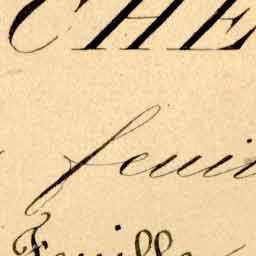 CHE
feui
Feuille